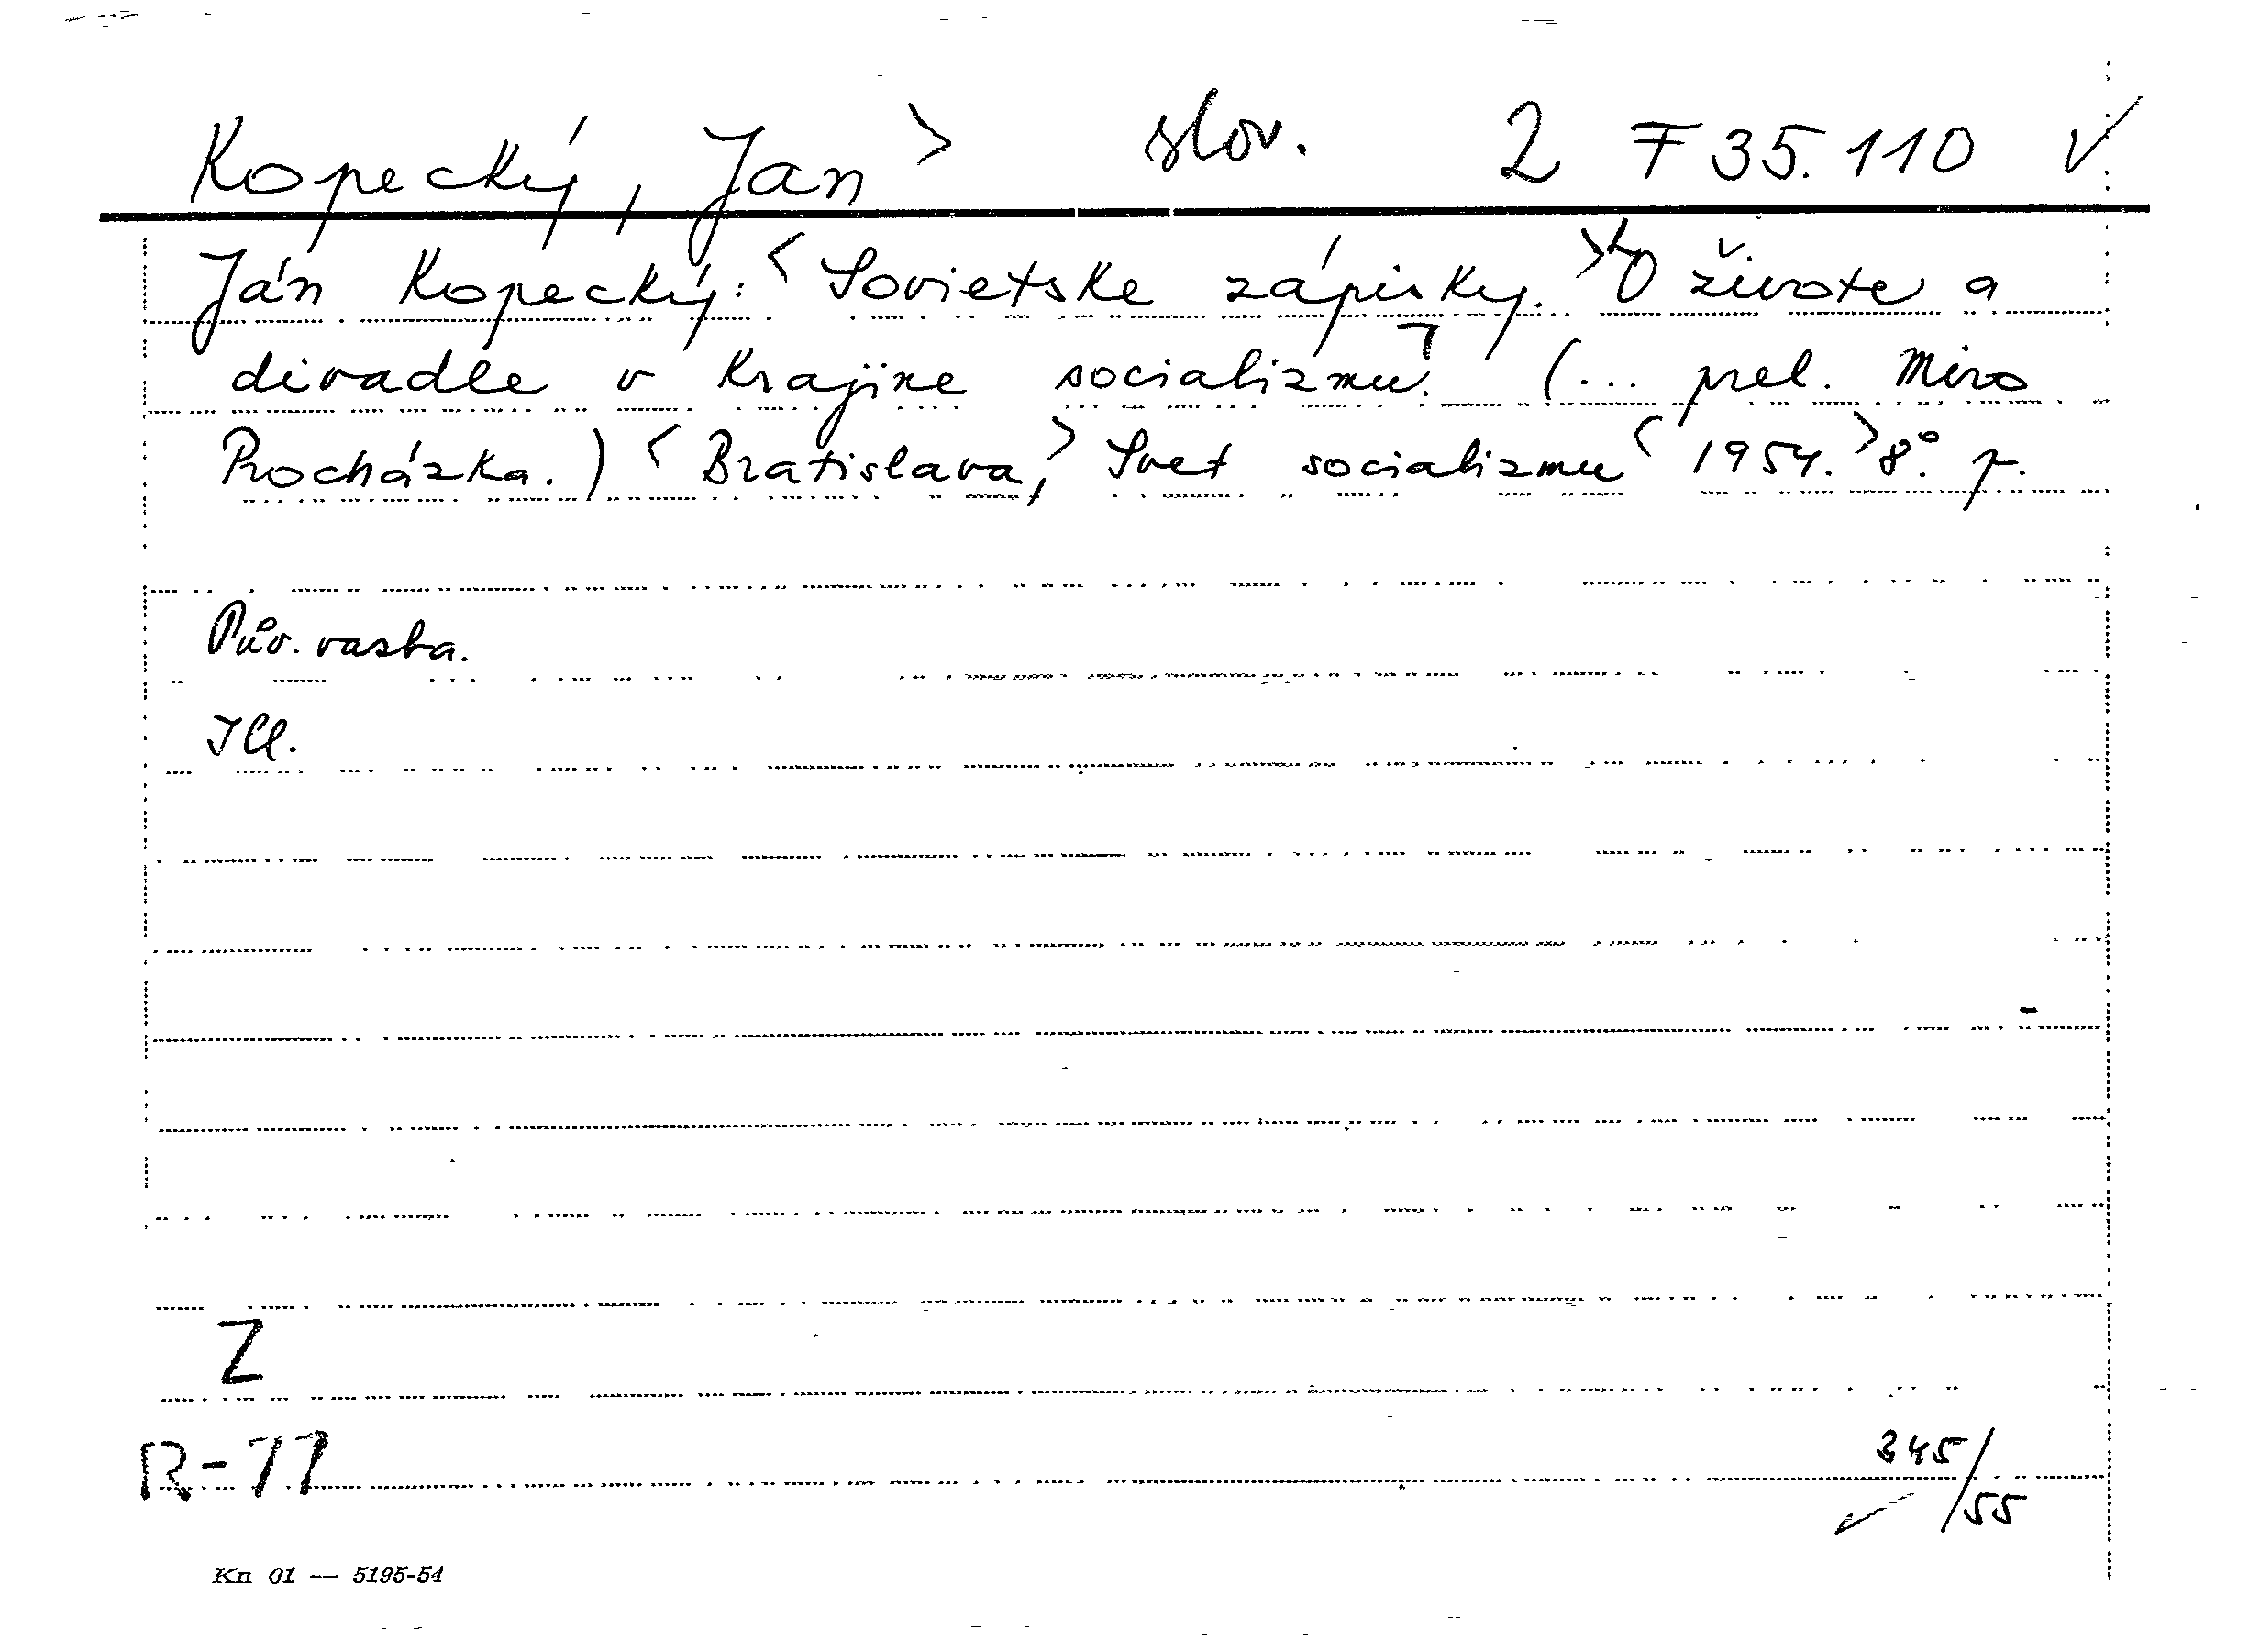 Kopecký, Jan > slov. 2 F 35.110 V
Ján Kopecký: < Sovietske zápisky. > O živote a
divadle v krajine socializmu. (... prel. Miro
Procházka.) < Bratislava, > Svet socializmu < 1954. > 8°. p.
Pův. vazba.
Ill.
Z
R-77
345/55
Kn 01 — 5195-54